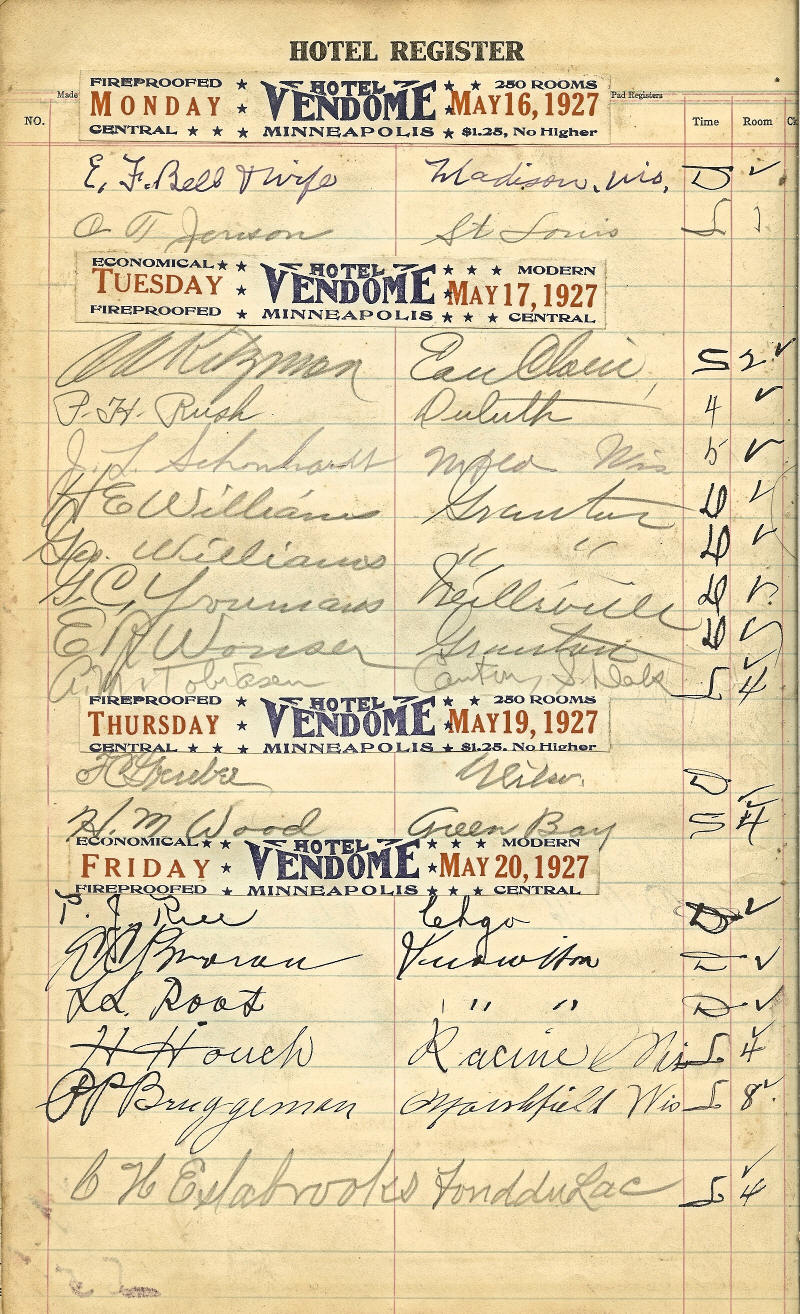 HOTEL REGISTER
Made Pad Registers
NO. Time Room
FIREPROOFED ★ HOTEL ★ ★ 250 ROOMS
MONDAY ★ VENDOME ★ MAY 16, 1927
CENTRAL ★ ★ ★ MINNEAPOLIS ★ $1.25, No Higher
E. F. Bell & wife Madison, Wis. D ✓
O T Jenson St Louis L
ECONOMICAL ★ ★ HOTEL ★ ★ ★ MODERN
TUESDAY ★ VENDOME ★ MAY 17, 1927
FIREPROOFED ★ MINNEAPOLIS ★ ★ ★ CENTRAL
Kitzman Eau Claire, S 2 ✓
P. H. Rush Duluth 4 ✓
J. L. Schonhardt Wis 5 ✓
H E Williams Granton ✓
Geo. Williams " " ✓
G. C. Youmans Neillsville ✓
E R Wonser Granton ✓
A. M. Tobiasen Canton, S. Dak L 4 ✓
FIREPROOFED ★ HOTEL ★ ★ 250 ROOMS
THURSDAY ★ VENDOME ★ MAY 19, 1927
CENTRAL ★ ★ ★ MINNEAPOLIS ★ $1.25, No Higher
D
H. M Wood Green Bay S 4 ✓
ECONOMICAL ★ ★ HOTEL ★ ★ ★ MODERN
FRIDAY ★ VENDOME ★ MAY 20, 1927
FIREPROOFED ★ MINNEAPOLIS ★ ★ ★ CENTRAL
P. J. Rice Chgo D ✓
Moran Knowlton ✓
L L Root " " D ✓
H Houch Racine Wis L 4 ✓
P P Bruggeman Marshfield Wis L 8 ✓
C H Eslabrooks Fond du Lac L 4 ✓